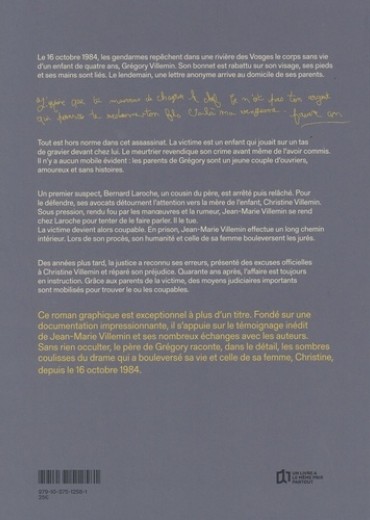 Le 16 octobre 1984, les gendarmes repêchent dans une rivière des Vosges le corps sans vie
d'un enfant de quatre ans, Grégory Villemin. Son bonnet est rabattu sur son visage, ses pieds
et ses mains sont liés. Le lendemain, une lettre anonyme arrive au domicile de ses parents.
J'espère que tu mourras de chagrin le chef. Ce n'est pas ton argent
qui pourra te redonner ton fils. Voilà ma vengeance. pauvre con.
Tout est hors norme dans cet assassinat. La victime est un enfant qui jouait sur un tas
de gravier devant chez lui. Le meurtrier revendique son crime avant même de l'avoir commis.
Il n'y a aucun mobile évident : les parents de Grégory sont un jeune couple d'ouvriers,
amoureux et sans histoires.
Un premier suspect, Bernard Laroche, un cousin du père, est arrêté puis relâché. Pour
le défendre, ses avocats détournent l'attention vers la mère de l'enfant, Christine Villemin.
Sous pression, rendu fou par les manœuvres et la rumeur, Jean-Marie Villemin se rend
chez Laroche pour tenter de le faire parler. Il le tue.
La victime devient alors coupable. En prison, Jean-Marie Villemin effectue un long chemin
intérieur. Lors de son procès, son humanité et celle de sa femme bouleversent les jurés.
Des années plus tard, la justice a reconnu ses erreurs, présenté des excuses officielles
à Christine Villemin et réparé son préjudice. Quarante ans après, l'affaire est toujours
en instruction. Grâce aux parents de la victime, des moyens judiciaires importants
sont mobilisés pour trouver le ou les coupables.
Ce roman graphique est exceptionnel à plus d'un titre. Fondé sur une
documentation impressionnante, il s'appuie sur le témoignage inédit
de Jean-Marie Villemin et ses nombreux échanges avec les auteurs.
Sans rien occulter, le père de Grégory raconte, dans le détail, les sombres
coulisses du drame qui a bouleversé sa vie et celle de sa femme, Christine,
depuis le 16 octobre 1984.
UN LIVRE A
LE MÊME PRIX
PARTOUT